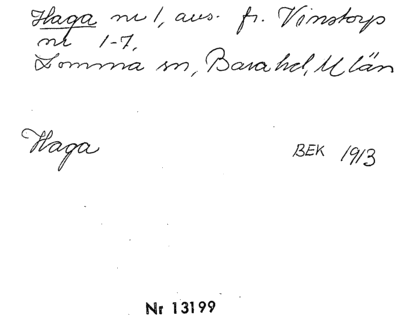 Haga nr 1, avs. fr. Vinstorp
nr 1-7,
Lomma sn, Bara hd, M län
Haga
BEK 1913
Nr 13199